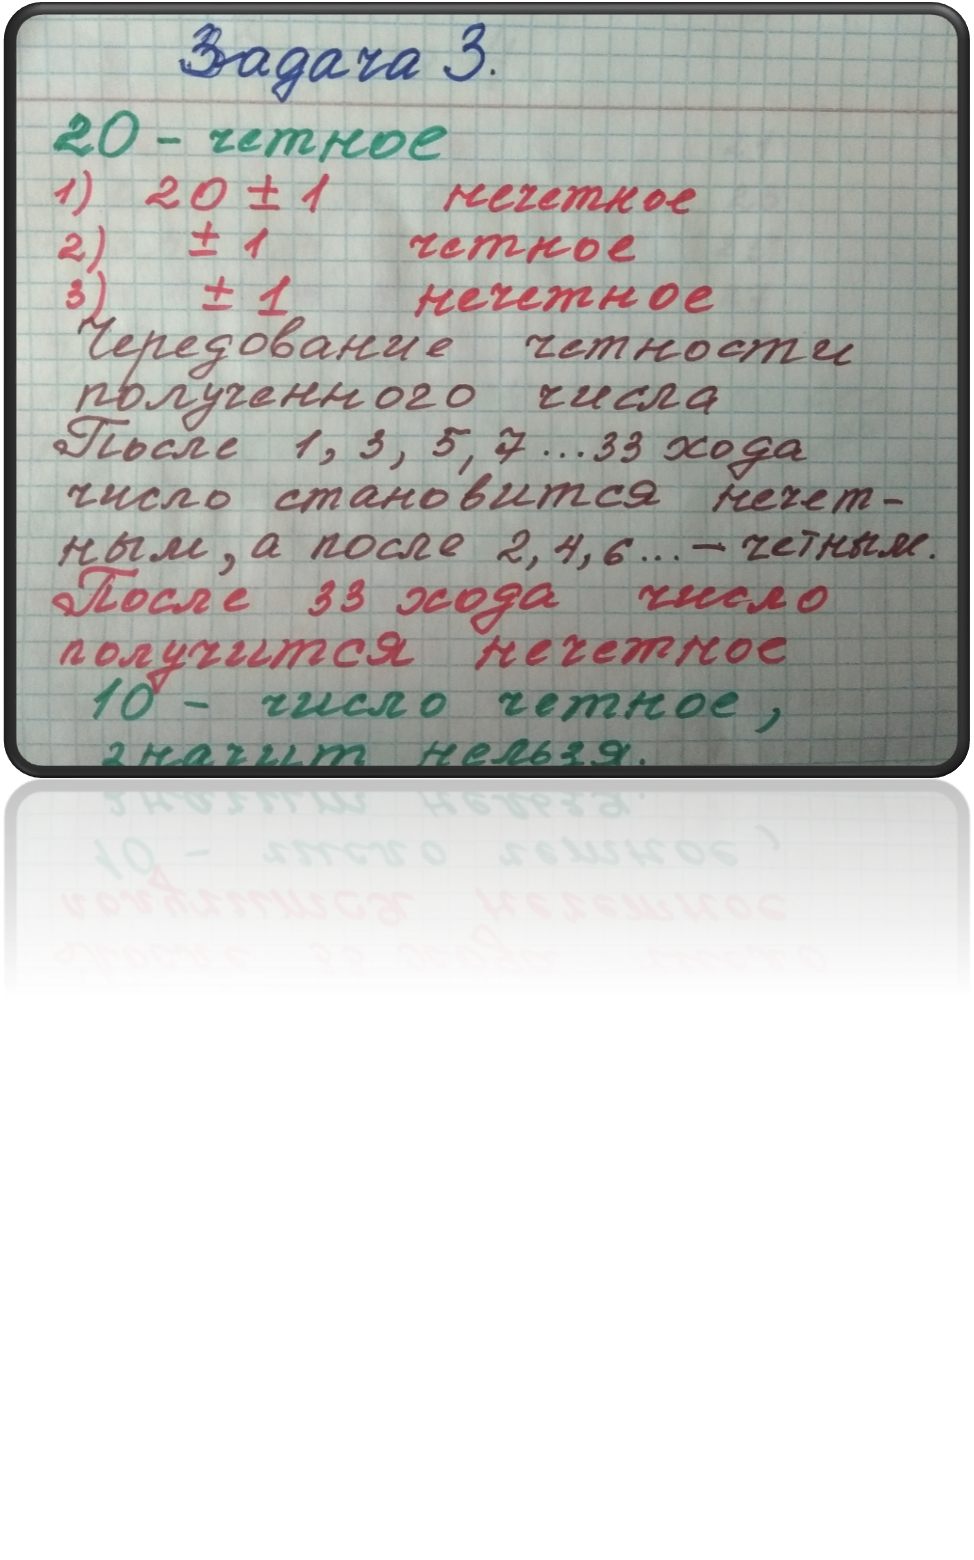 Задача 3.
20 - четное
1) 20 ± 1 нечетное
2) ± 1 четное
3) ± 1 нечетное
Чередование четности
полученного числа
После 1, 3, 5, 7 ... 33 хода
число становится нечет-
ным, а после 2, 4, 6 ... - четным.
После 33 хода число
получится нечетное
10 - число четное,
значит нельзя.